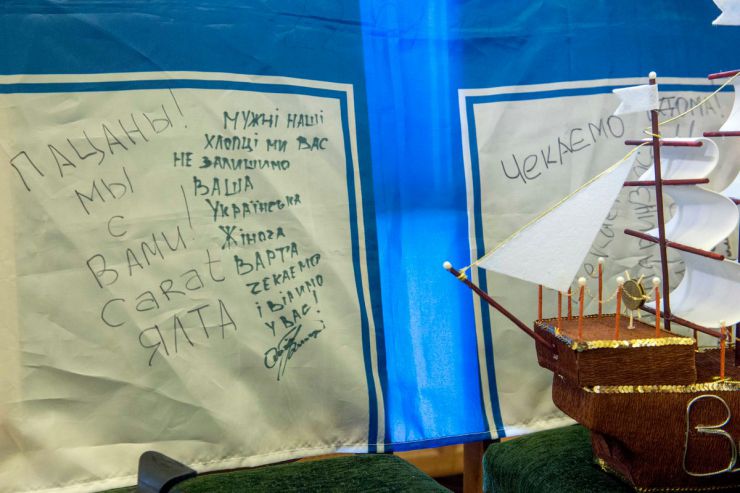 ПАЦАНЫ!
МЫ
С
ВАМИ!
Carat
ЯЛТА
МУЖНІ НАШІ
ХЛОПЦІ МИ ВАС
НЕ ЗАЛИШИМО
ВАША
УКРАЇНСЬКА
ЖІНОЧА
ВАРТА
ЧЕКАЄМО
І ВІРИМО
У ВАС!
ЧЕКАЄМО
ВДОМА!
В